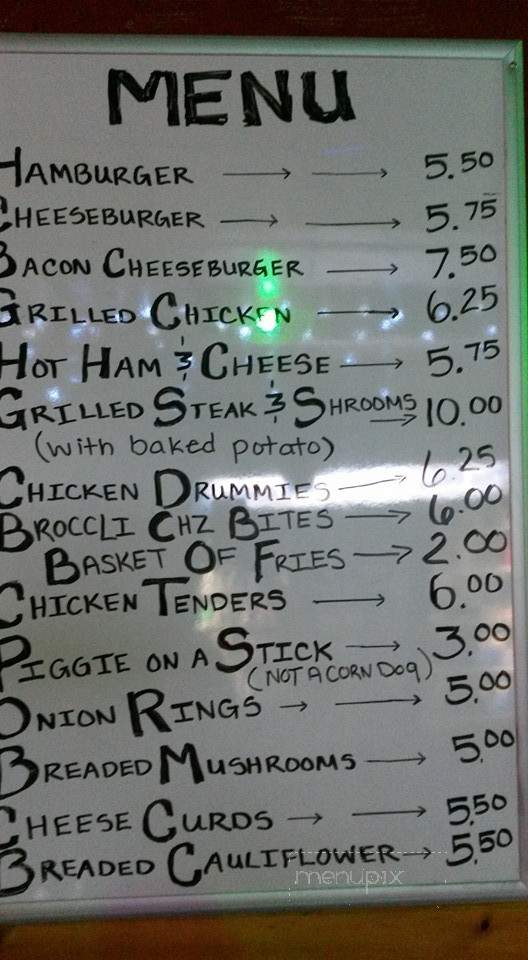 MENU
HAMBURGER → → 5.50
CHEESEBURGER → → 5.75
BACON CHEESEBURGER → 7.50
GRILLED CHICKEN → 6.25
HOT HAM & CHEESE → 5.75
GRILLED STEAK & SHROOMS → 10.00
(with baked potato)
CHICKEN DRUMMIES → 6.25
BROCCLI CHZ BITES → 6.00
BASKET OF FRIES → 2.00
CHICKEN TENDERS → 6.00
PIGGIE ON A STICK → 3.00
(NOT A CORN DOG)
ONION RINGS → → 5.00
BREADED MUSHROOMS → 5.00
CHEESE CURDS → → 5.50
BREADED CAULIFLOWER → 5.50
menupix